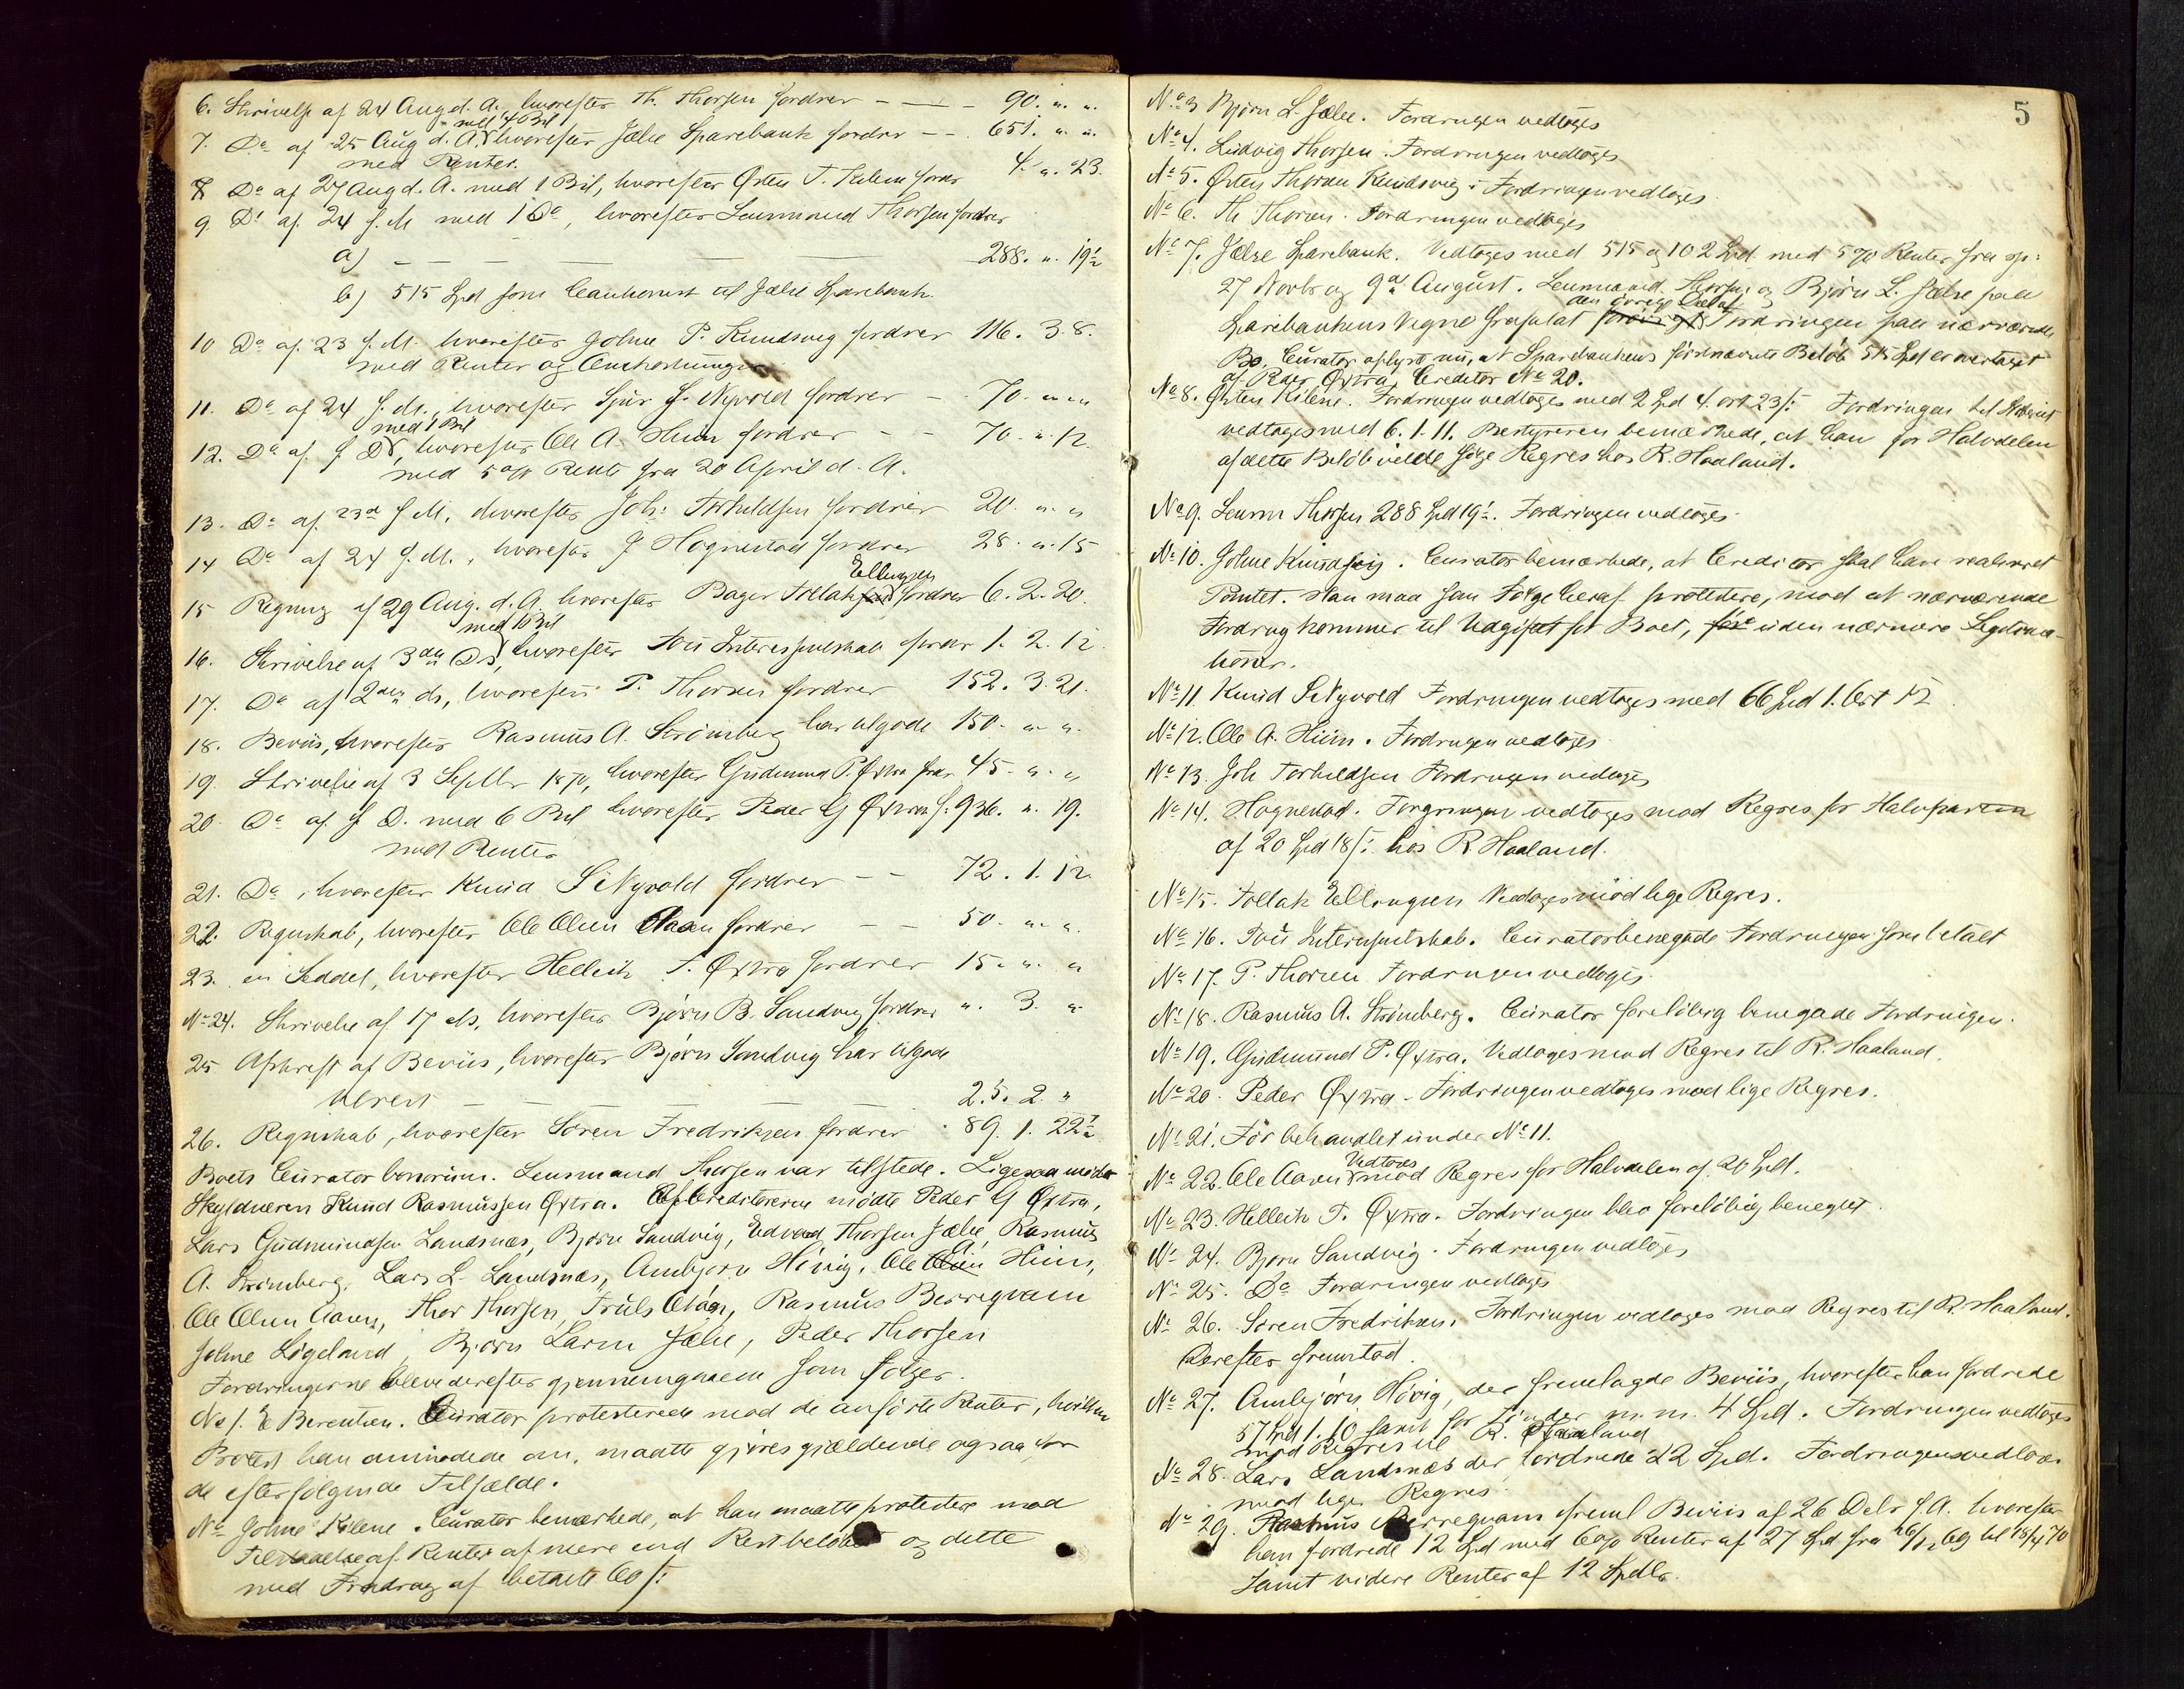 6. Skrivelse af 24 Aug d. A., hvorefter Th. Thorsen fordrer - — - 90. " "
med 4 Bil
7. Do af 25 Aug d. A. hvorefter Jælse Sparebank fordrer - - 651. " "
med Renter.
8 Do af 27 Aug d. A. med 1 Bil, hvorefter Østen T. Kilene fordr 4. " 23.
9 Do af 24 f. M med 1 Do, hvorefter Lensmand Thorsen fordrer
a) - - - — — — 288. " 19½
b) 515 Spd som Cautionist til Jælse Sparebank.
10 Do af 23 f. M. hvorefter Golme P. Knudsvig fordrer 116. 3. 8.
med Renter og Omkostninger
11. Do af 24 f. M., hvorefter Sjur S. Nyvold fordrer - 70. " "
med 1 Bil
12. Do af f D, hvorefter Ole A. Hiim fordrer - - 70. " 12
med 5 % Rente fra 20 April d. A.
13. Do af 23d f M. hvorefter Joh: Torkildsen fordrer 20. " "
14 Do af 24 f. M., hvorefter J Hognestad fordrer 28. " 15
Ellingsen
15 Regning af 29 Aug. d. A. hvorefter Bager Tollak fordrer 6. 2. 20
med 1 Bil
16. Skrivelse af 3die Ds, hvorefter Tou Interesentskab fordr 1. 2. 12.
17. Do af 2den ds, hvorefter P. Thorsen fordrer 152. 3. 21.
18. Beviis, hvorefter Rasmus A. Strömberg har tilgode 150. " "
19. Skrivelse af 3 Septbr 1870, hvorefter Gudmund P. Øxtra fordr 45. " "
20. Do af f D. med 6 Bil hvorefter Peder G Øxtra f: 936. " 19.
med Renter
21. Do, hvorefter Knud S. Nyvold fordrer - - 72. 1. 12.
22. Regnskab, hvorefter Ole Olsen Aaen fordrer - - 50. " "
23. en Seddel, hvorefter Helleik T. Øxtra fordrer 15. " "
No 24. Skrivelse af 17 ds, hvorefter Bjørn B. Sandvig fordrer ". 3. "
25 Afskrift af Beviis, hvorefter Bjørn Sandvig har tilgode
- - — — — 25. 2. "
26. Regnskab, hvorefter Sören Fredriksen fordrer 89. 1. 22½
Boets Curator bonorum. Lensmand Thorsen var tilstede. Ligesaa mødte
Skyldneren Knud Rasmussen Øxtra. Af Creditorerne mödte Peder G Øxtra,
Lars Gudmundsen Landsnæs, Bjørn Sandvig, Edvard Thorsen Jælse, Rasmus
A. Strömberg, Lars L. Landsnæs, Ambjørn Hövig, Ole A. Hiim,
Ole Olsen Aaen, Thor Thorsen, Truls , Rasmus Berregvam
Golme Lögeland, Bjørn Larsen Jælse, Peder Thorsen
Fordringerne blev derefter gjennemgaaede som følger.
No 1. E Berentsen. Curator protesterede mod de anførte Renter, hvilken
Protest han anmodede om, maatte gjøres gjældende ogsaa for
de efterfølgende Tilfælde.
No Golme Kilene. Curator bemærkede, at han maatte protestere mod
Tilstaaelse af Renter af mere end Restbeløbet og dette
med Fradrag af betalte 60 f:
5
No 3 Bjørn L. Jælse. Fordringen vedtoges
No 4. Ludvig Thorsen. Fordringen vedtoges
No 5. Østen Thorsen Knudsvig. Fordringen vedtoges.
No 6. Th Thorsen. Fordringen vedtoges
No 7. Jælse Sparebank. Vedtoges med 515 og 102 Spd. med 5 % Renter fra sp:
27 Novbr og 9de August. Lensmand Thorsen og Bjørn L. Jælse paa
den övrige Deel af
Sparebankens Vegne frafalt Fordringen paa nærværende
Bo. Curator oplyste nu, at Sparebankens førstnævnte Beløb 515 Spd er overtaget
af Peder Øxtra, Creditor No 20.
No 8. Østen Kilene. Fordringen vedtoges med 2 Spd 4 ort 23 f: Fordringen til
vedtoges med 6. 1. 11. Bestyreren bemærkede, at han for Halvdelen
af dette Beløb vilde søge Regres hos R. Haaland.
No 9. Lensm Thorsen 288 Spd 19½. Fordringen vedtoges.
No 10. Golme Knudsvig. Curator bemærkede, at Creditor skal have realiseret
Pantet. Han maa som Følge heraf protestere, mod at nærværende
Fordring kommer til Udgift for Boet, uden nærmere Legitima-
tioner.
No 11 Knud S. Nyvold Fordringen vedtoges med 66 Spd 1. Ort 12
No 12. Ole A. Hiim. Fordringen vedtoges
No 13. Joh Torkildsen Fordringen vedtoges
No 14. Hognestad. Forgringen vedtoges mod Regres for Halvparten
af 20 Spd 18 f: hos R. Haaland.
No 15. Tollak Ellingsen Vedtoges mod lige Regres.
No 16. Tou Interesentskab. Curator benegtede Fordringen som betalt
No 17. P. Thorsen Fordringen vedtoges.
No 18. Rasmus A. Strömberg. Curator foreløbig benegtede Fordringen.
No 19. Gudmund P. Øxtra. Vedtoges mod Regres til R. Haaland.
No 20. Peder Øxtra - Fordringen vedtoges mod lige Regres.
No 21. Før behandlet under No 11.
Vedtoges
No 22. Ole Aaen mod Regres for Halvdelen af 20 Spd.
No 23. Helleik T. Øxtra. Fordringen blev foreløbig benegtet.
No 24. Bjørn Sandvig. Fordringen vedtoges
No 25. Do Fordringen vedtoges
No 26. Sören Fredriksen. Fordringen vedtoges mod Regres til R. Haaland.
Derefter fremstod.
No 27. Ambjørn Hövig, der fremlagde Beviis, hvorefter han fordrede
57 Spd 1. 10 samt for Tönder m. m. 4 Spd. Fordringen vedtoges
mod Regres til R. Haaland
No 28. Lars Landsnæs der fordrede 22 Spd. Fordringen vedtoges
mod lige Regres.
No 29. Rasmus Berregvam freml Beviis af 26 Debr f. A. hvorefter
han fordrede 12 Spd med 6 % Renter af 27 Spd fra 26/12 69 til 18/4 70
samt videre Renter af 12 Spdlr.